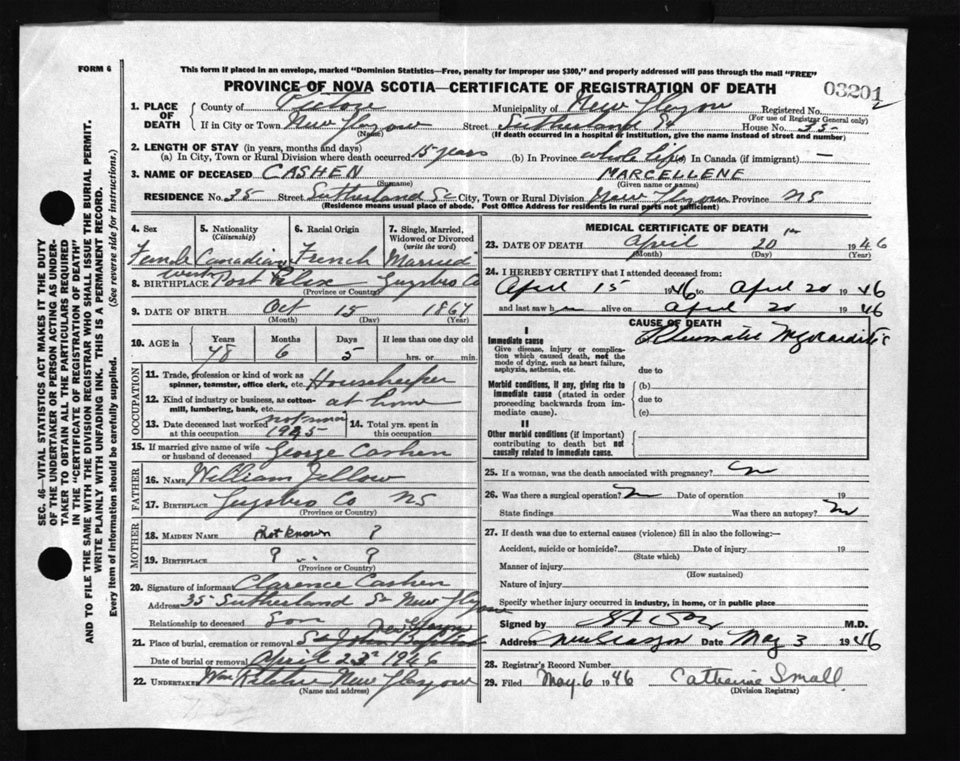 FORM 6
This form if placed in an envelope, marked "Dominion Statistics—Free, penalty for improper use $300," and properly addressed will pass through the mail "FREE"
PROVINCE OF NOVA SCOTIA—CERTIFICATE OF REGISTRATION OF DEATH
03201
2
1. PLACE OF DEATH
County of Pictou Municipality of New Glasgow Registered No.
(For use of Registrar General only)
If in City or Town New Glasgow Street Sutherland St House No. 35
(Name) (If death occurred in a hospital or institution, give the name instead of street and number)
2. LENGTH OF STAY (in years, months and days)
(a) In City, Town or Rural Division where death occurred 15 years (b) In Province whole life (c) In Canada (if immigrant) —
3. NAME OF DECEASED CASHEN MARCELLENE
(Surname) (Given name or names)
RESIDENCE No. 35 Street Sutherland St City, Town or Rural Division New Glasgow Province NS
(Residence means usual place of abode. Post Office Address for residents in rural parts not sufficient)
4. Sex 5. Nationality (Citizenship) 6. Racial Origin 7. Single, Married, Widowed or Divorced (write the word)
Female Canadian French Married
8. BIRTHPLACE Port Felix Guysboro Co
(Province or Country)
9. DATE OF BIRTH Oct 15 1867
(Month) (Day) (Year)
10. AGE in Years Months Days If less than one day old
78 6 5 hrs. or min.
OCCUPATION
11. Trade, profession or kind of work as spinner, teamster, office clerk, etc. Housekeeper
12. Kind of industry or business, as cotton-mill, lumbering, bank, etc. at home
13. Date deceased last worked at this occupation 1945
14. Total yrs. spent in this occupation
15. If married give name of wife or husband of deceased George Cashen
FATHER
16. NAME William
17. BIRTHPLACE Guysboro Co NS
(Province or Country)
MOTHER
18. MAIDEN NAME Not known ?
19. BIRTHPLACE ? ?
(Province or Country)
20. Signature of informant Clarence Cashen
Address 35 Sutherland St New Glasgow
Relationship to deceased Son
21. Place of burial, cremation or removal New Glasgow St John
Date of burial or removal April 23 1946
22. UNDERTAKER Wm New Glasgow
(Name and address)
MEDICAL CERTIFICATE OF DEATH
23. DATE OF DEATH April 20th 1946
(Month) (Day) (Year)
24. I HEREBY CERTIFY that I attended deceased from:
April 15 1946 to April 20 1946
and last saw h alive on April 20 1946
CAUSE OF DEATH
I
Immediate cause Rheumatic Myocarditis
Give disease, injury or complication which caused death, not the mode of dying, such as heart failure, asphyxia, asthenia, etc.
due to
Morbid conditions, if any, giving rise to immediate cause (stated in order proceeding backwards from immediate cause).
(b)
due to
(c)
II
Other morbid conditions (if important) contributing to death but not causally related to immediate cause.
25. If a woman, was the death associated with pregnancy? no
26. Was there a surgical operation? no Date of operation 19
State findings Was there an autopsy? no
27. If death was due to external causes (violence) fill in also the following:—
Accident, suicide or homicide? Date of injury 19
(State which)
Manner of injury
(How sustained)
Nature of injury
Specify whether injury occurred in industry, in home, or in public place
Signed by M.D.
Address New Glasgow Date May 3 1946
28. Registrar's Record Number
29. Filed May 6 1946 Catherine Small
(Division Registrar)
SEC. 46—VITAL STATISTICS ACT MAKES IT THE DUTY
OF THE UNDERTAKER OR PERSON ACTING AS UNDERTAKER TO OBTAIN ALL THE PARTICULARS REQUIRED
IN THE "CERTIFICATE OF REGISTRATION OF DEATH"
AND TO FILE THE SAME WITH THE DIVISION REGISTRAR WHO SHALL ISSUE THE BURIAL PERMIT.
WRITE PLAINLY WITH UNFADING INK. THIS IS A PERMANENT RECORD.
Every item of information should be carefully supplied. (See reverse side for instructions.)